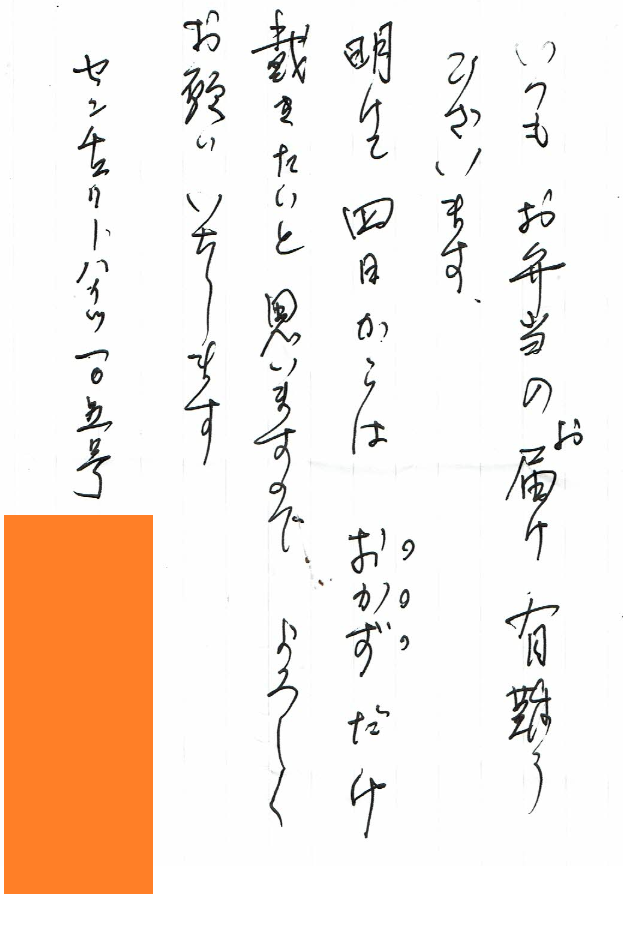 いつもお弁当のお届け有難う
ございます、
明けて四日からはおかずだけ
戴きたいと思いますのでよろしく
お願いいたします
センチュリートハイツ一〇五号